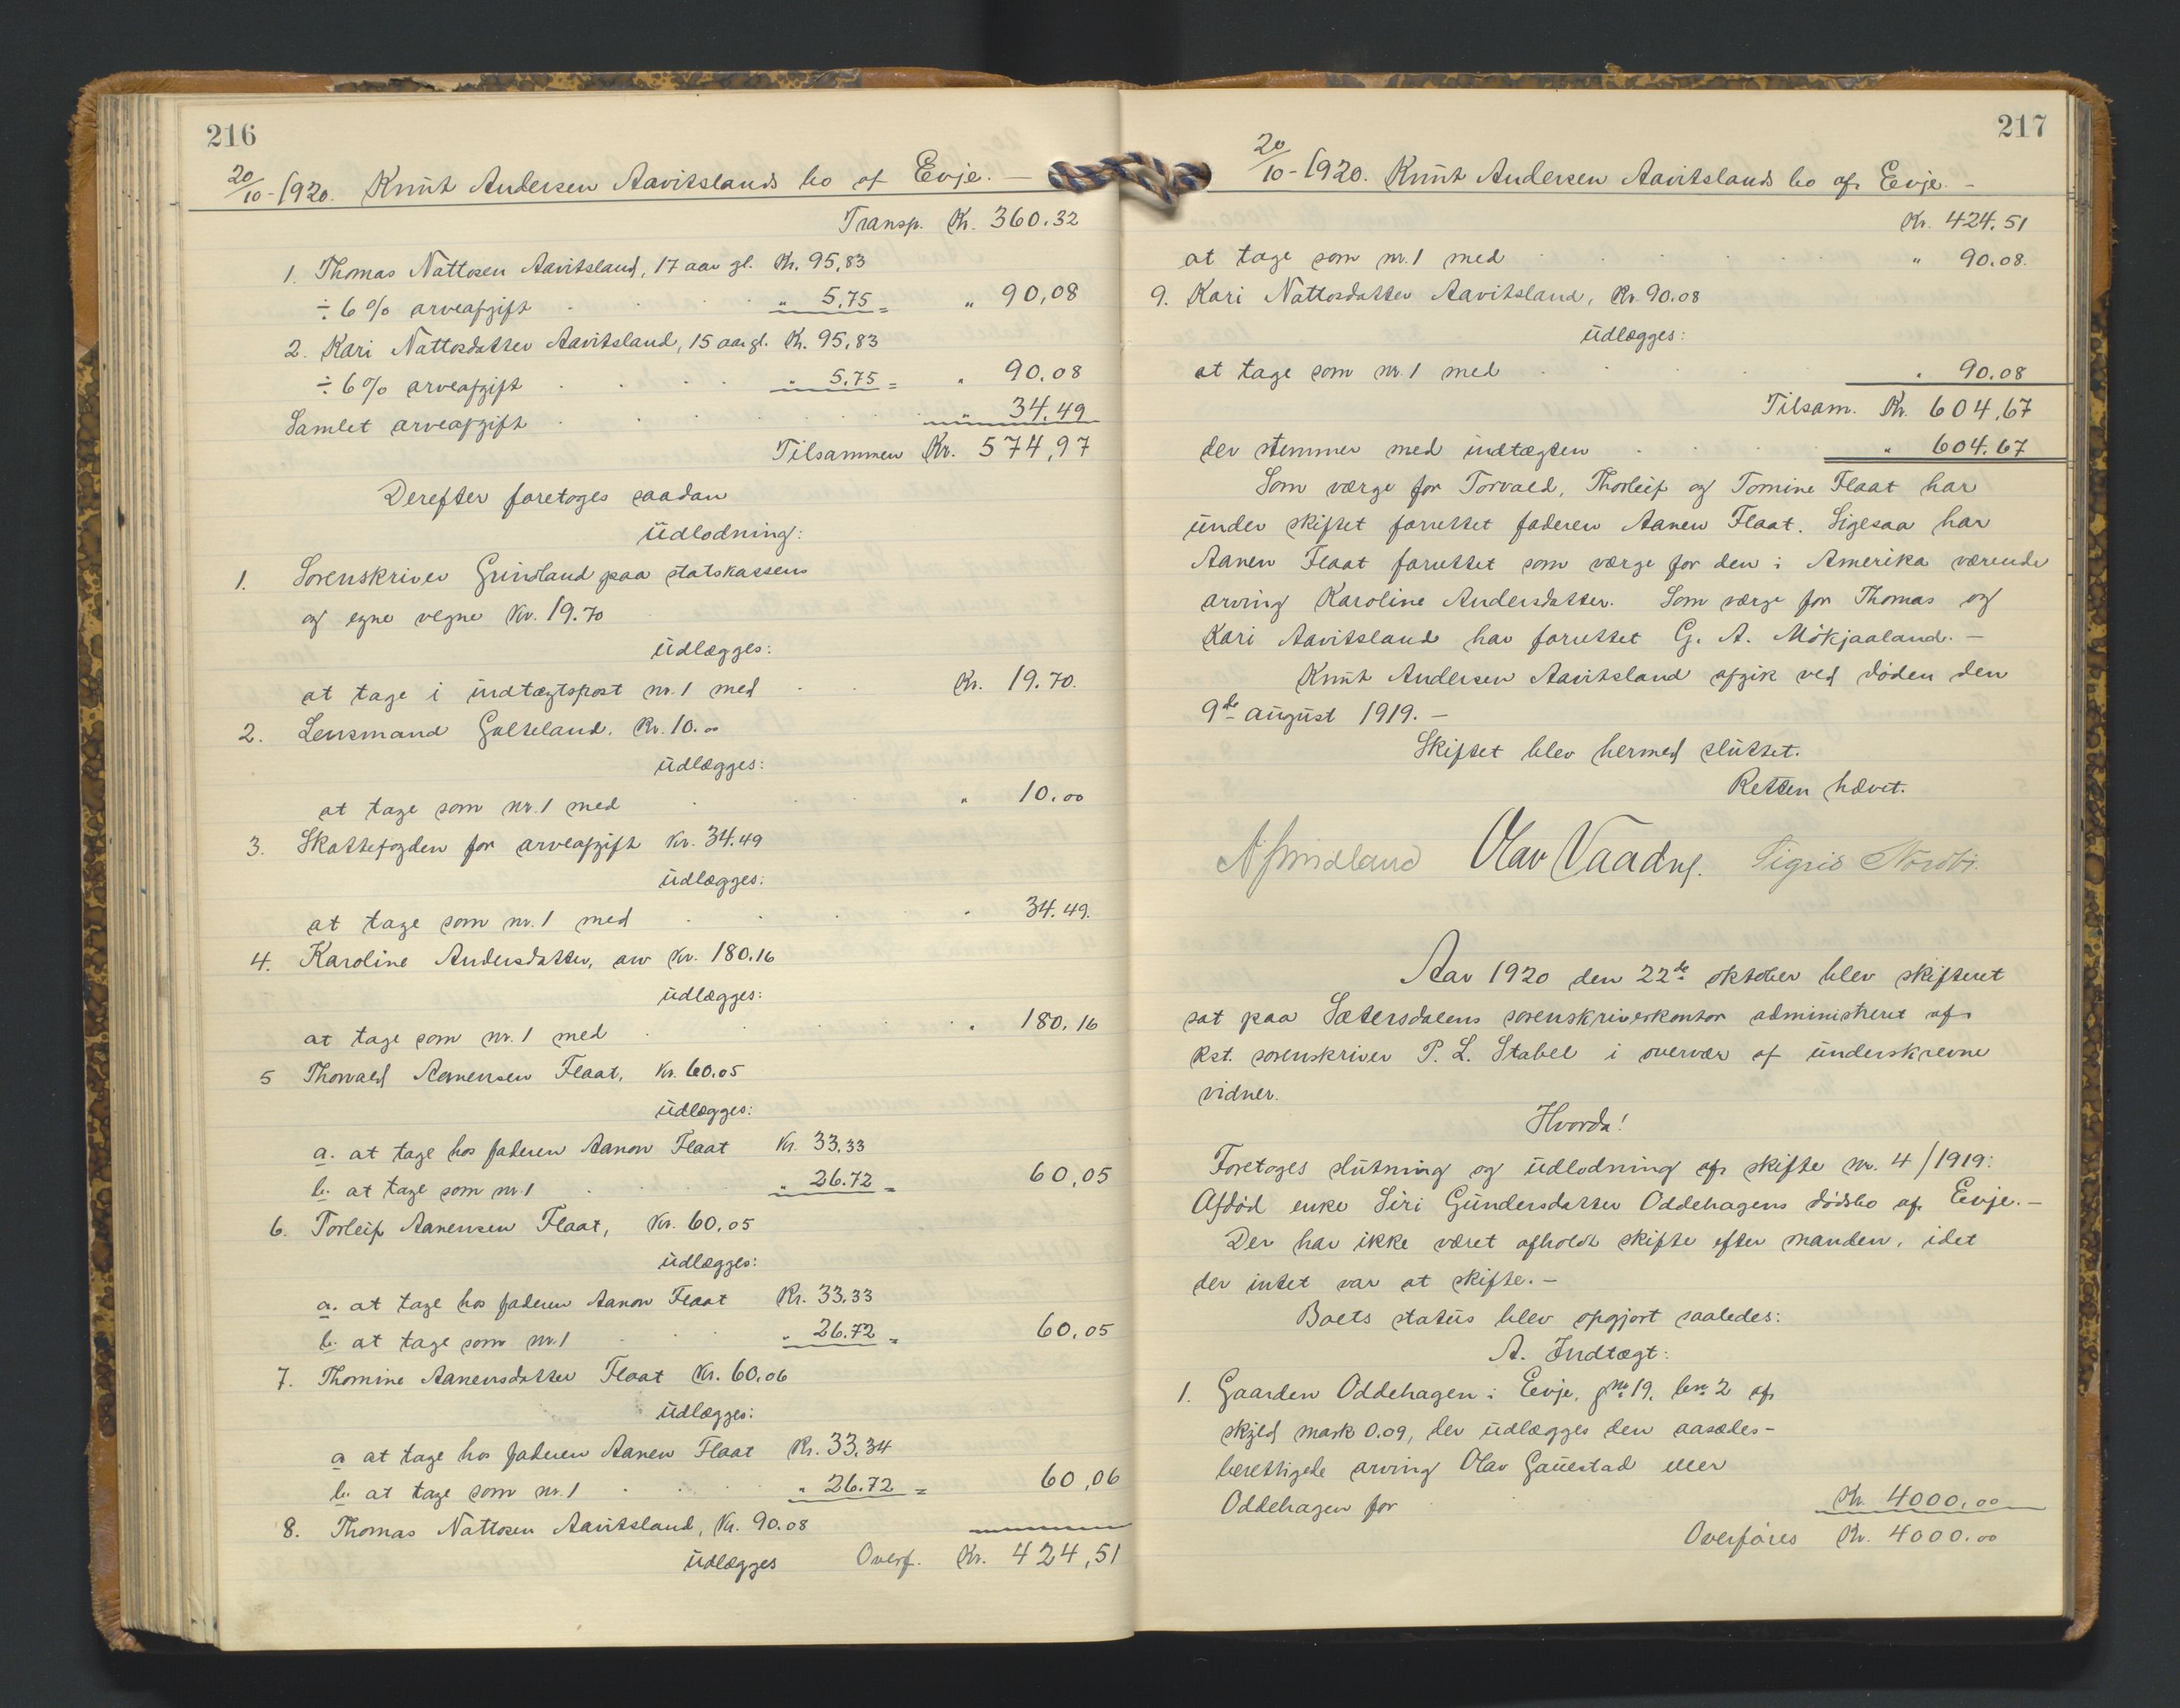 216
20/10-1920. Knut Andersen Aavitslands bo af Evje. –
Transp. Kr. 360.32
1. Thomas Nattosen Aavitsland, 17 aar gl. Kr. 95,83
÷ 6 % arveafgift " 5,75 = " 90,08
2. Kari Nattosdatter Aavitsland, 15 aar gl. Kr. 95,83
÷ 6 % arveafgift " 5,75 = " 90.08
Samlet arveafgift " 34,49
Tilsammen Kr. 574,97
Derefter foretoges saadan
Udlodning:
1. Sorenskriver Grindland paa statskassens
og egne vegne Kr. 19.70
udlægges:
at tage i indtægtspost nr. 1 med Kr. 19.70.
2. Lensmand Galteland. Kr. 10.00
udlægges:
at tage som nr. 1 med " 10.00
3. Skattefogden for arveafgift Kr. 34.49
udlægges:
at tage som nr. 1 med " 34.49.
4. Karoline Andersdatter, arv Kr. 180.16
udlægges:
at tage som nr. 1 med " 180,16
5 Thorvald Aanensen Flaat, Kr. 60.05
udlægges:
a. at tage hos faderen Aanon Flaat Kr. 33,33
b. at tage som nr. 1 " 26.72 = 60,05
6. Torleif Aanensen Flaat, Kr. 60,05
udlægges:
a. at tage hos faderen Aanon Flaat Kr. 33,33
b. at tage som nr. 1 " 26.72 = 60,05
7. Thomine Aanensdatter Flaat Kr. 60,06
udlægges:
a at tage hos faderen Aanen Flaat Kr. 33,34
b. at tage som nr. 1 " 26.72 = 60,06
8. Thomas Nattosen Aavitsland, Kr. 90.08
udlægges Overf. Kr. 424,51
217
20/10-1920. Knut Andersen Aavitslands bo af Evje. –
Kr. 424,51
at tage som nr. 1 med " 90.08.
9. Kari Nattosdatter Aavitsland, Kr. 90.08
udlægges:
at tage som nr. 1 med " 90.08
Tilsam. Kr. 604,67
der stemmer med indtægten " 604.67
Som værge for Torvald, Thorleif og Tomine Flaat har
under skiftet forrettet faderen Aanen Flaat. Ligesaa har
Aanen Flaat forrettet som værge for den i Amerika værende
arving Karoline Andersdatter. Som værge for Thomas og
Kari Aavitsland har forrettet G. A. Mökjaaland. –
Knut Andersen Aavitsland afgik ved döden den
9de august 1919. –
Skiftet blev hermed sluttet.
Retten hævet.
A Grindland Olav Vaadny. Sigrid Nordbö.
Aar 1920 den 22de oktober blev skifteret
sat paa Sætersdalens sorenskriverkontor administreret af
kst. sorenskriver P. L. Stabel i overvær af underskrevne
vidner.
Hvorda!
Foretoges slutning og udlodning af skifte nr. 4/1919:
Afdöd enke Siri Gundersdatter Oddehagens dödsbo af Evje. –
Der har ikke været afholdt skifte efter manden, idet
der intet var at skifte. –
Boets status blev opgjort saaledes:
A. Indtægt:
1. Gaarden Oddehagen i Evje, gno 19. bno 2 af
skyld mark 0.09, der udlægges den aasædes-
berettigede arving Olav Gauestad eller
Oddehagen for Kr. 4000,00
Overföres Kr. 4000.00